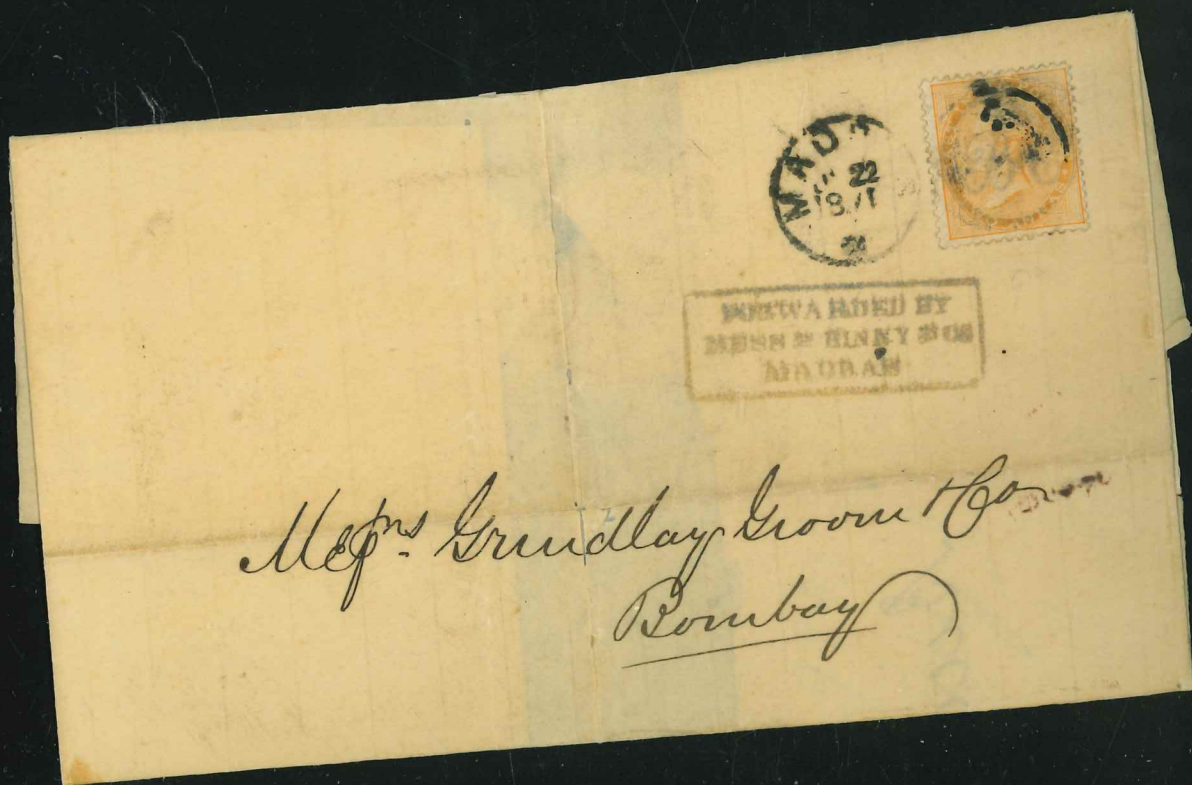 MAD
22
1871
FORWARDED BY
MESSRS BINNY & CO
MADRAS
Messrs Grindlay Groom & Co
Bombay